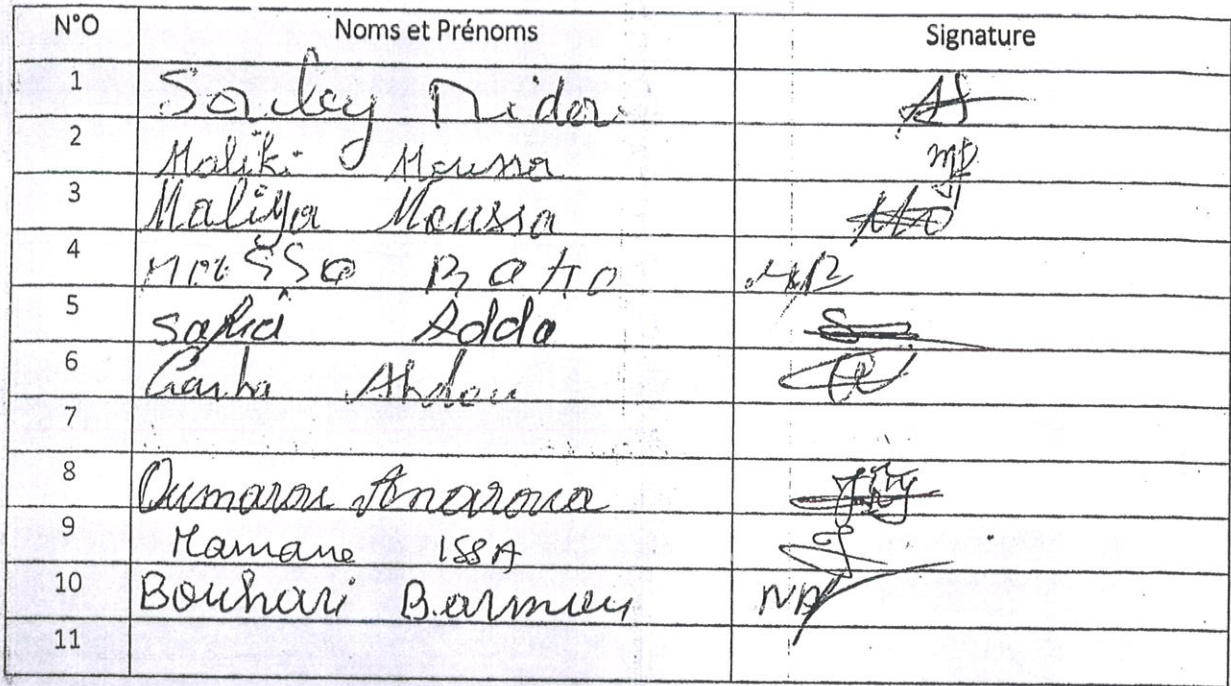 N°O Noms et Prénoms Signature
1 Souley
2 Maliki Moussa
3 Maliya Moussa
4 Moussa
5 Safia Adda
6 Abdou
7
8 Oumarou Anaroua
9 Mamane ISSA
10 Bouhari Barmou
11